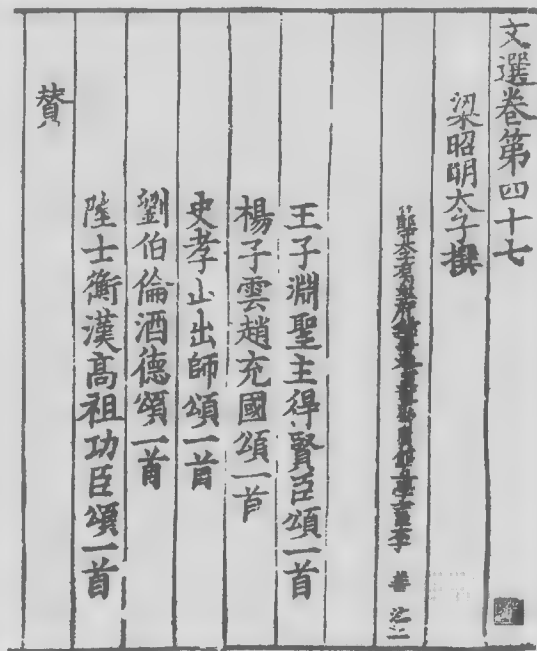 文選卷第四十七
梁昭明太子撰
善注
王子淵聖主得賢臣頌一首
楊子雲趙充國頌一首
史孝山出師頌一首
劉伯倫酒德頌一首
陸士衡漢高祖功臣頌一首
贊